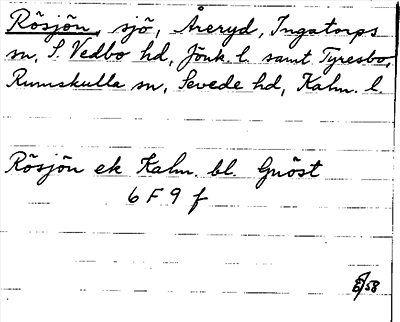 Rösjön, sjö, Åreryd, Ingatorps
sn, S. Vedbo hd, Jönk. l. samt Tyresbo,
Rumskulla sn, Sevede hd, Kalm. l.
Rösjön ek Kalm. bl. Gnöst
6 F 9 f
58